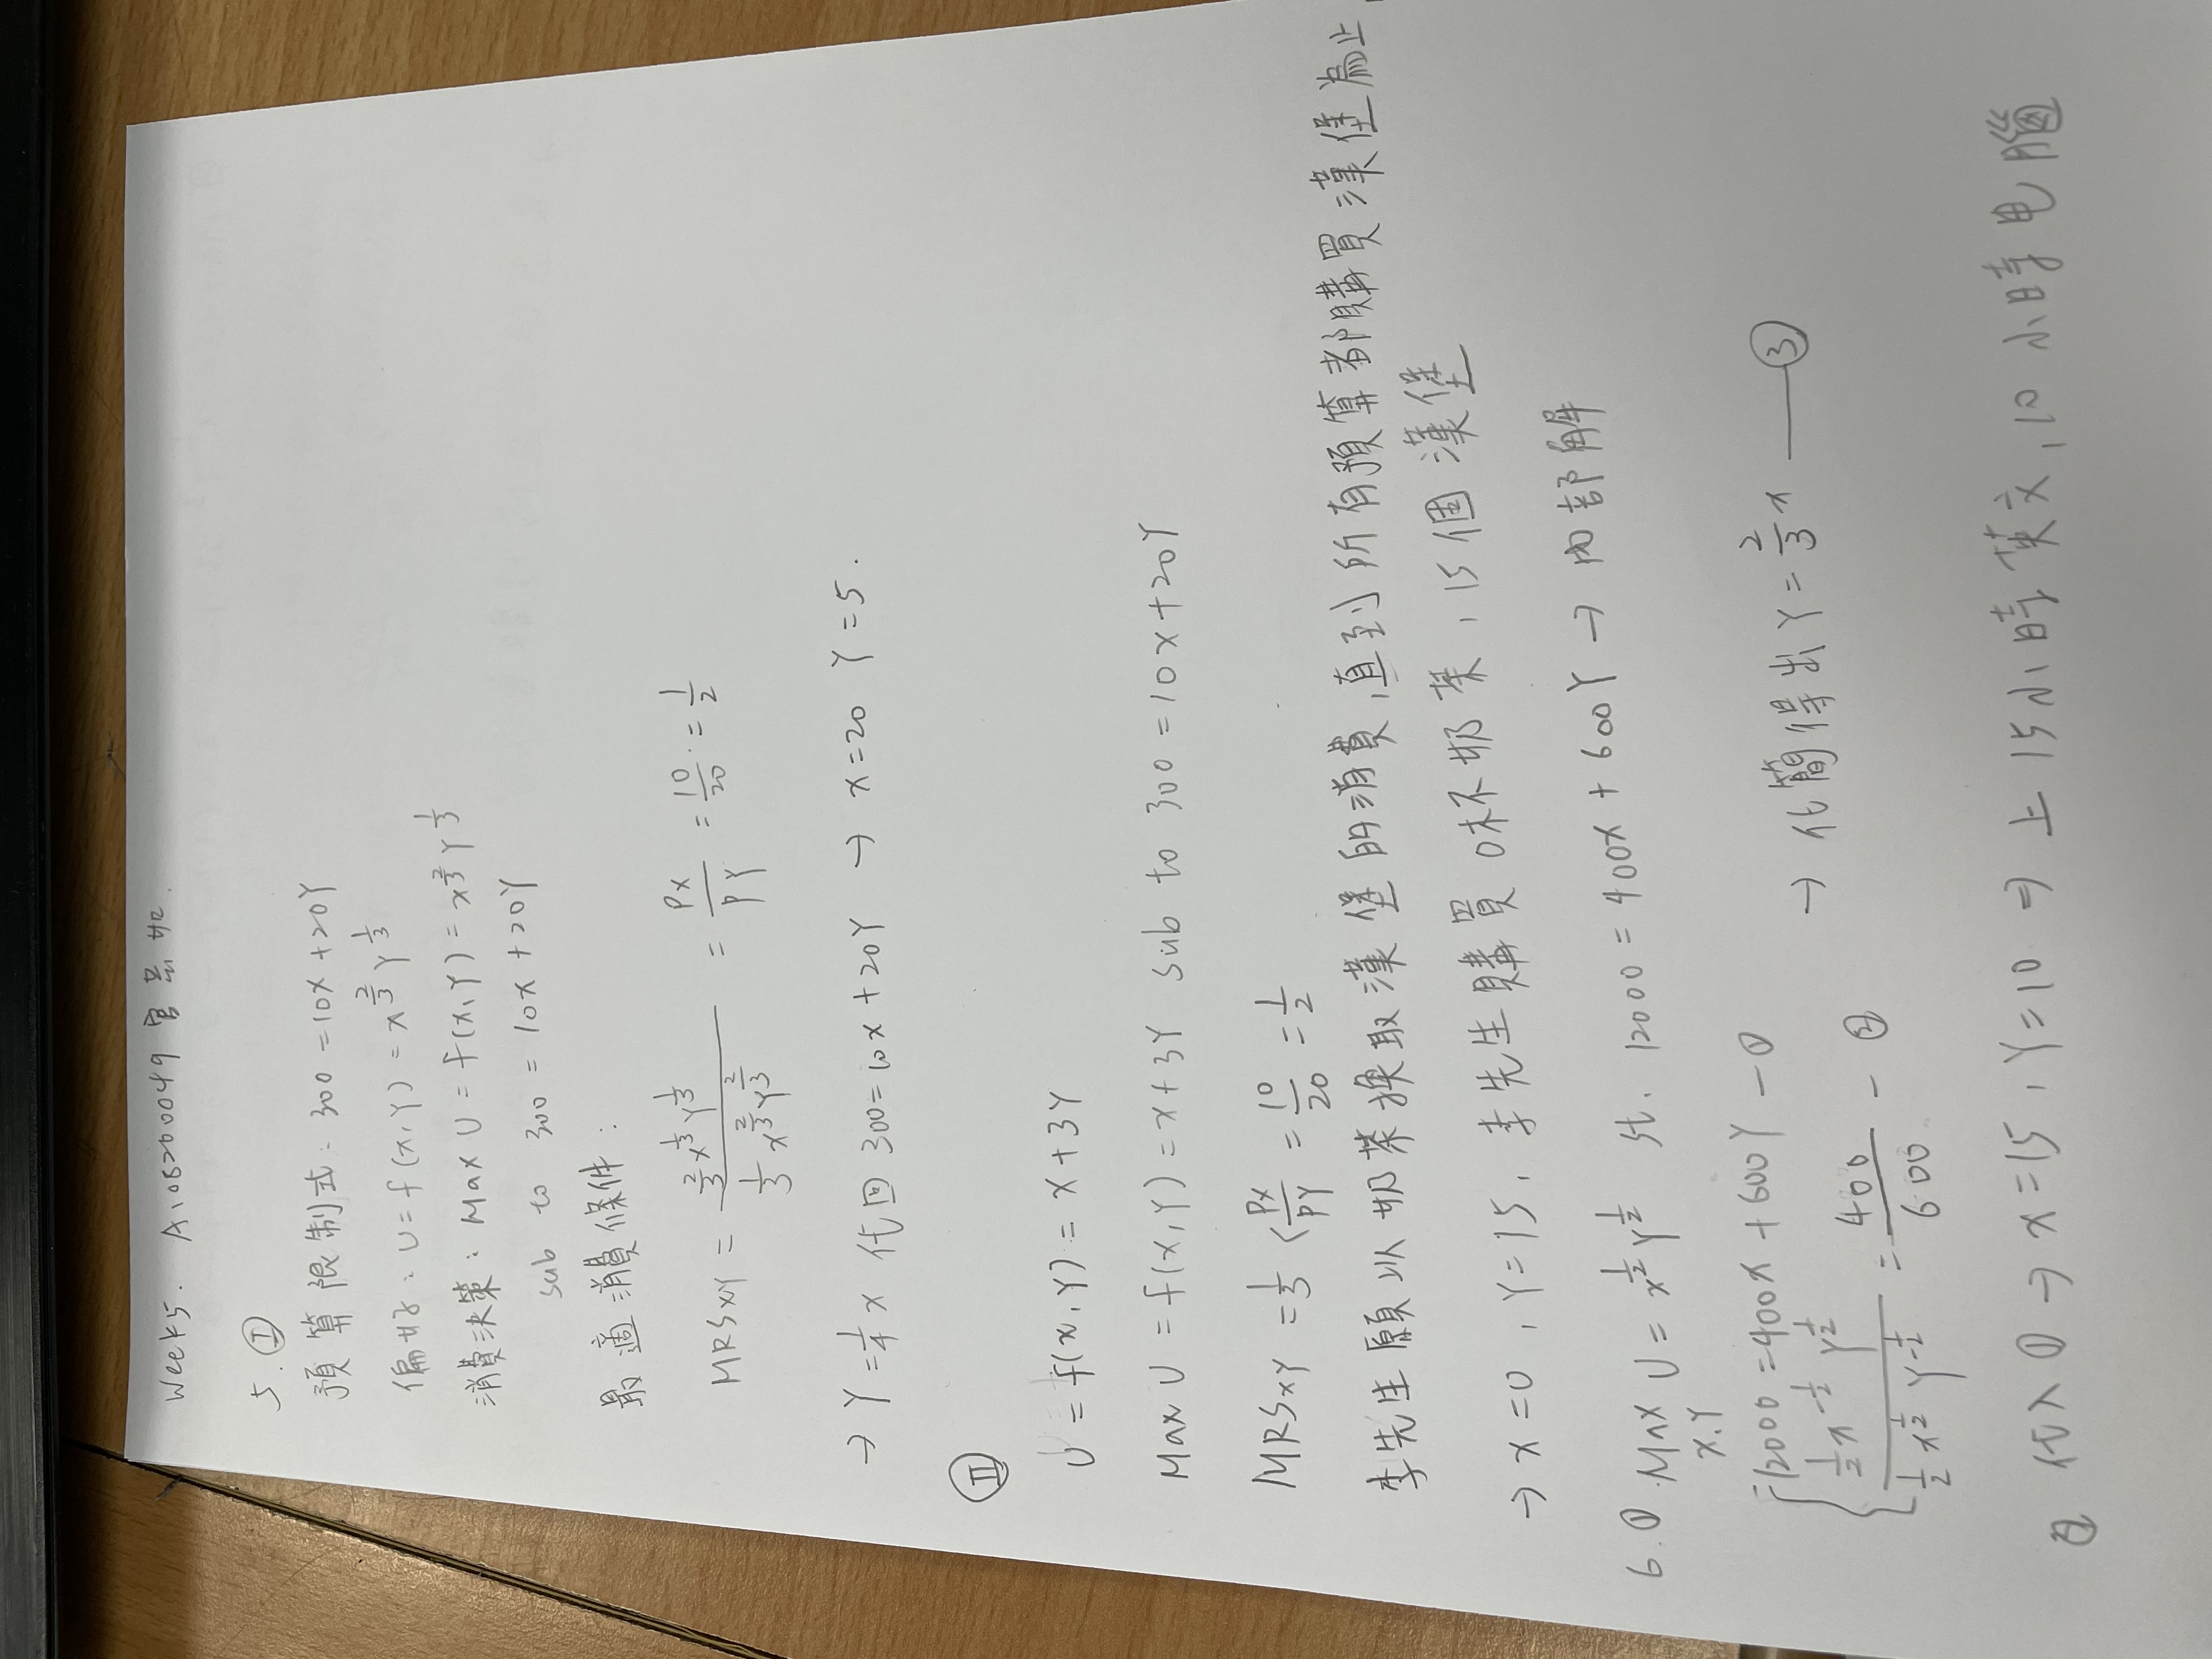 Week5. A108260049 官芸如.
5. Ⓘ
預算限制式: 300 = 10X + 20Y
偏好: U = f(x,Y) = x^(2/3) Y^(1/3)
消費決策: Max U = f(x,Y) = x^(2/3) Y^(1/3)
sub to 300 = 10x + 20Y
最適消費條件:
MRSxy = (2/3 x^(1/3) Y^(1/3)) / (1/3 x^(2/3) Y^(2/3)) = Px/PY = 10/20 = 1/2
→ Y = 1/4 x 代回 300 = 10x + 20Y → x = 20 Y = 5.
Ⅱ
U = f(x,Y) = x + 3Y
Max U = f(x,Y) = x + 3Y sub to 300 = 10x + 20Y
MRSxy = 1/3 < Px/PY = 10/20 = 1/2
李先生願以奶茶換取漢堡的消費,直到所有預算都購買漢堡為止,
→ x = 0 , Y = 15, 李先生購買0杯奶茶, 15個漢堡
6.① Max U = x^(1/2) Y^(1/2) st. 12000 = 400x + 600Y → 內部解
x.Y
12000 = 400x + 600Y - ①
(1/2 x^(-1/2) Y^(1/2)) / (1/2 x^(1/2) Y^(-1/2)) = 400/600 - ②
→ 化簡得出 Y = 2/3 x — ③
② 代入① → x = 15, Y = 10 ⇒ 上15小時英文, 10小時电腦